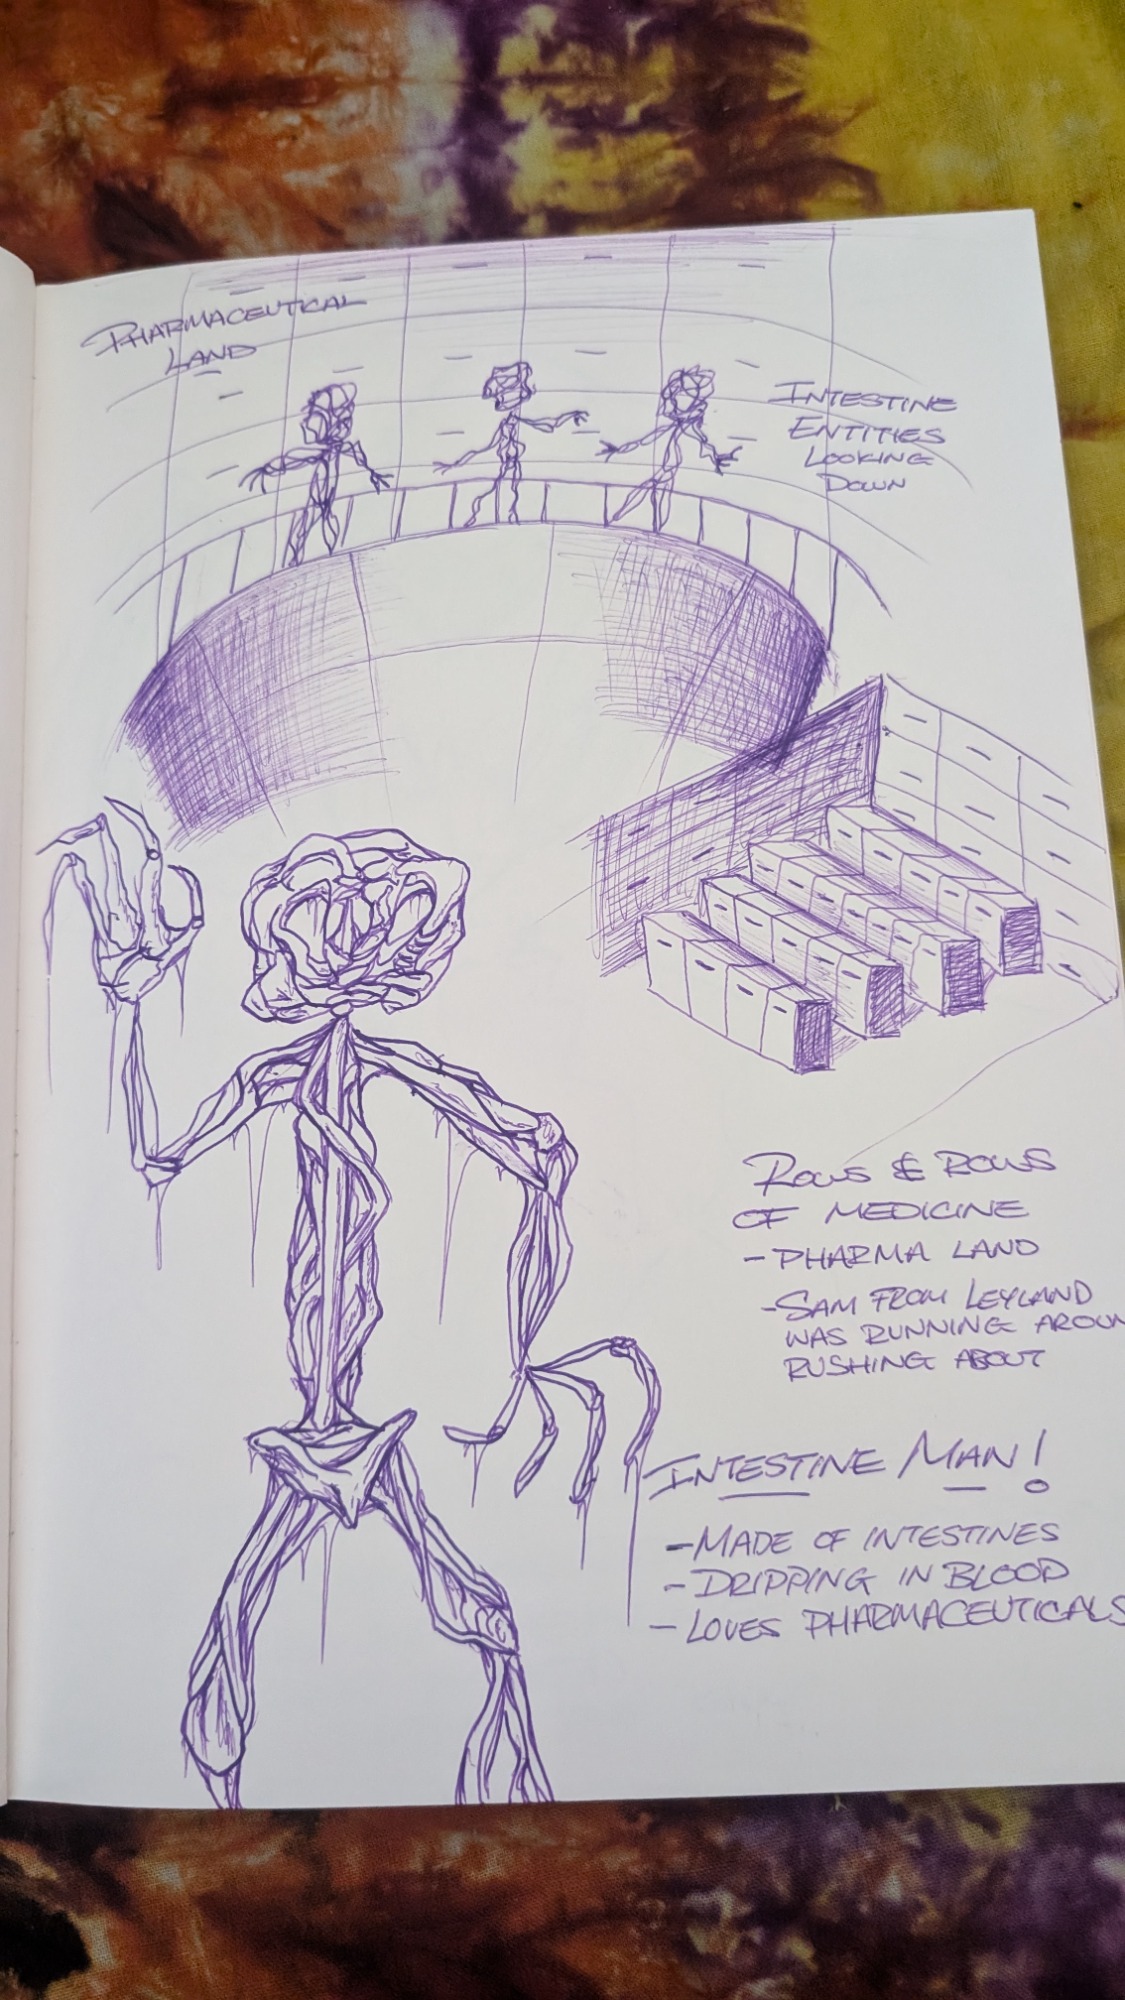 PHARMACEUTICAL
LAND
INTESTINE
ENTITIES
LOOKING
DOWN
ROWS & ROWS
OF MEDICINE
- PHARMA LAND
- SAM FROM LEYLAND
WAS RUNNING AROUN
RUSHING ABOUT
INTESTINE MAN!
- MADE OF INTESTINES
- DRIPPING IN BLOOD
- LOVES PHARMACEUTICALS